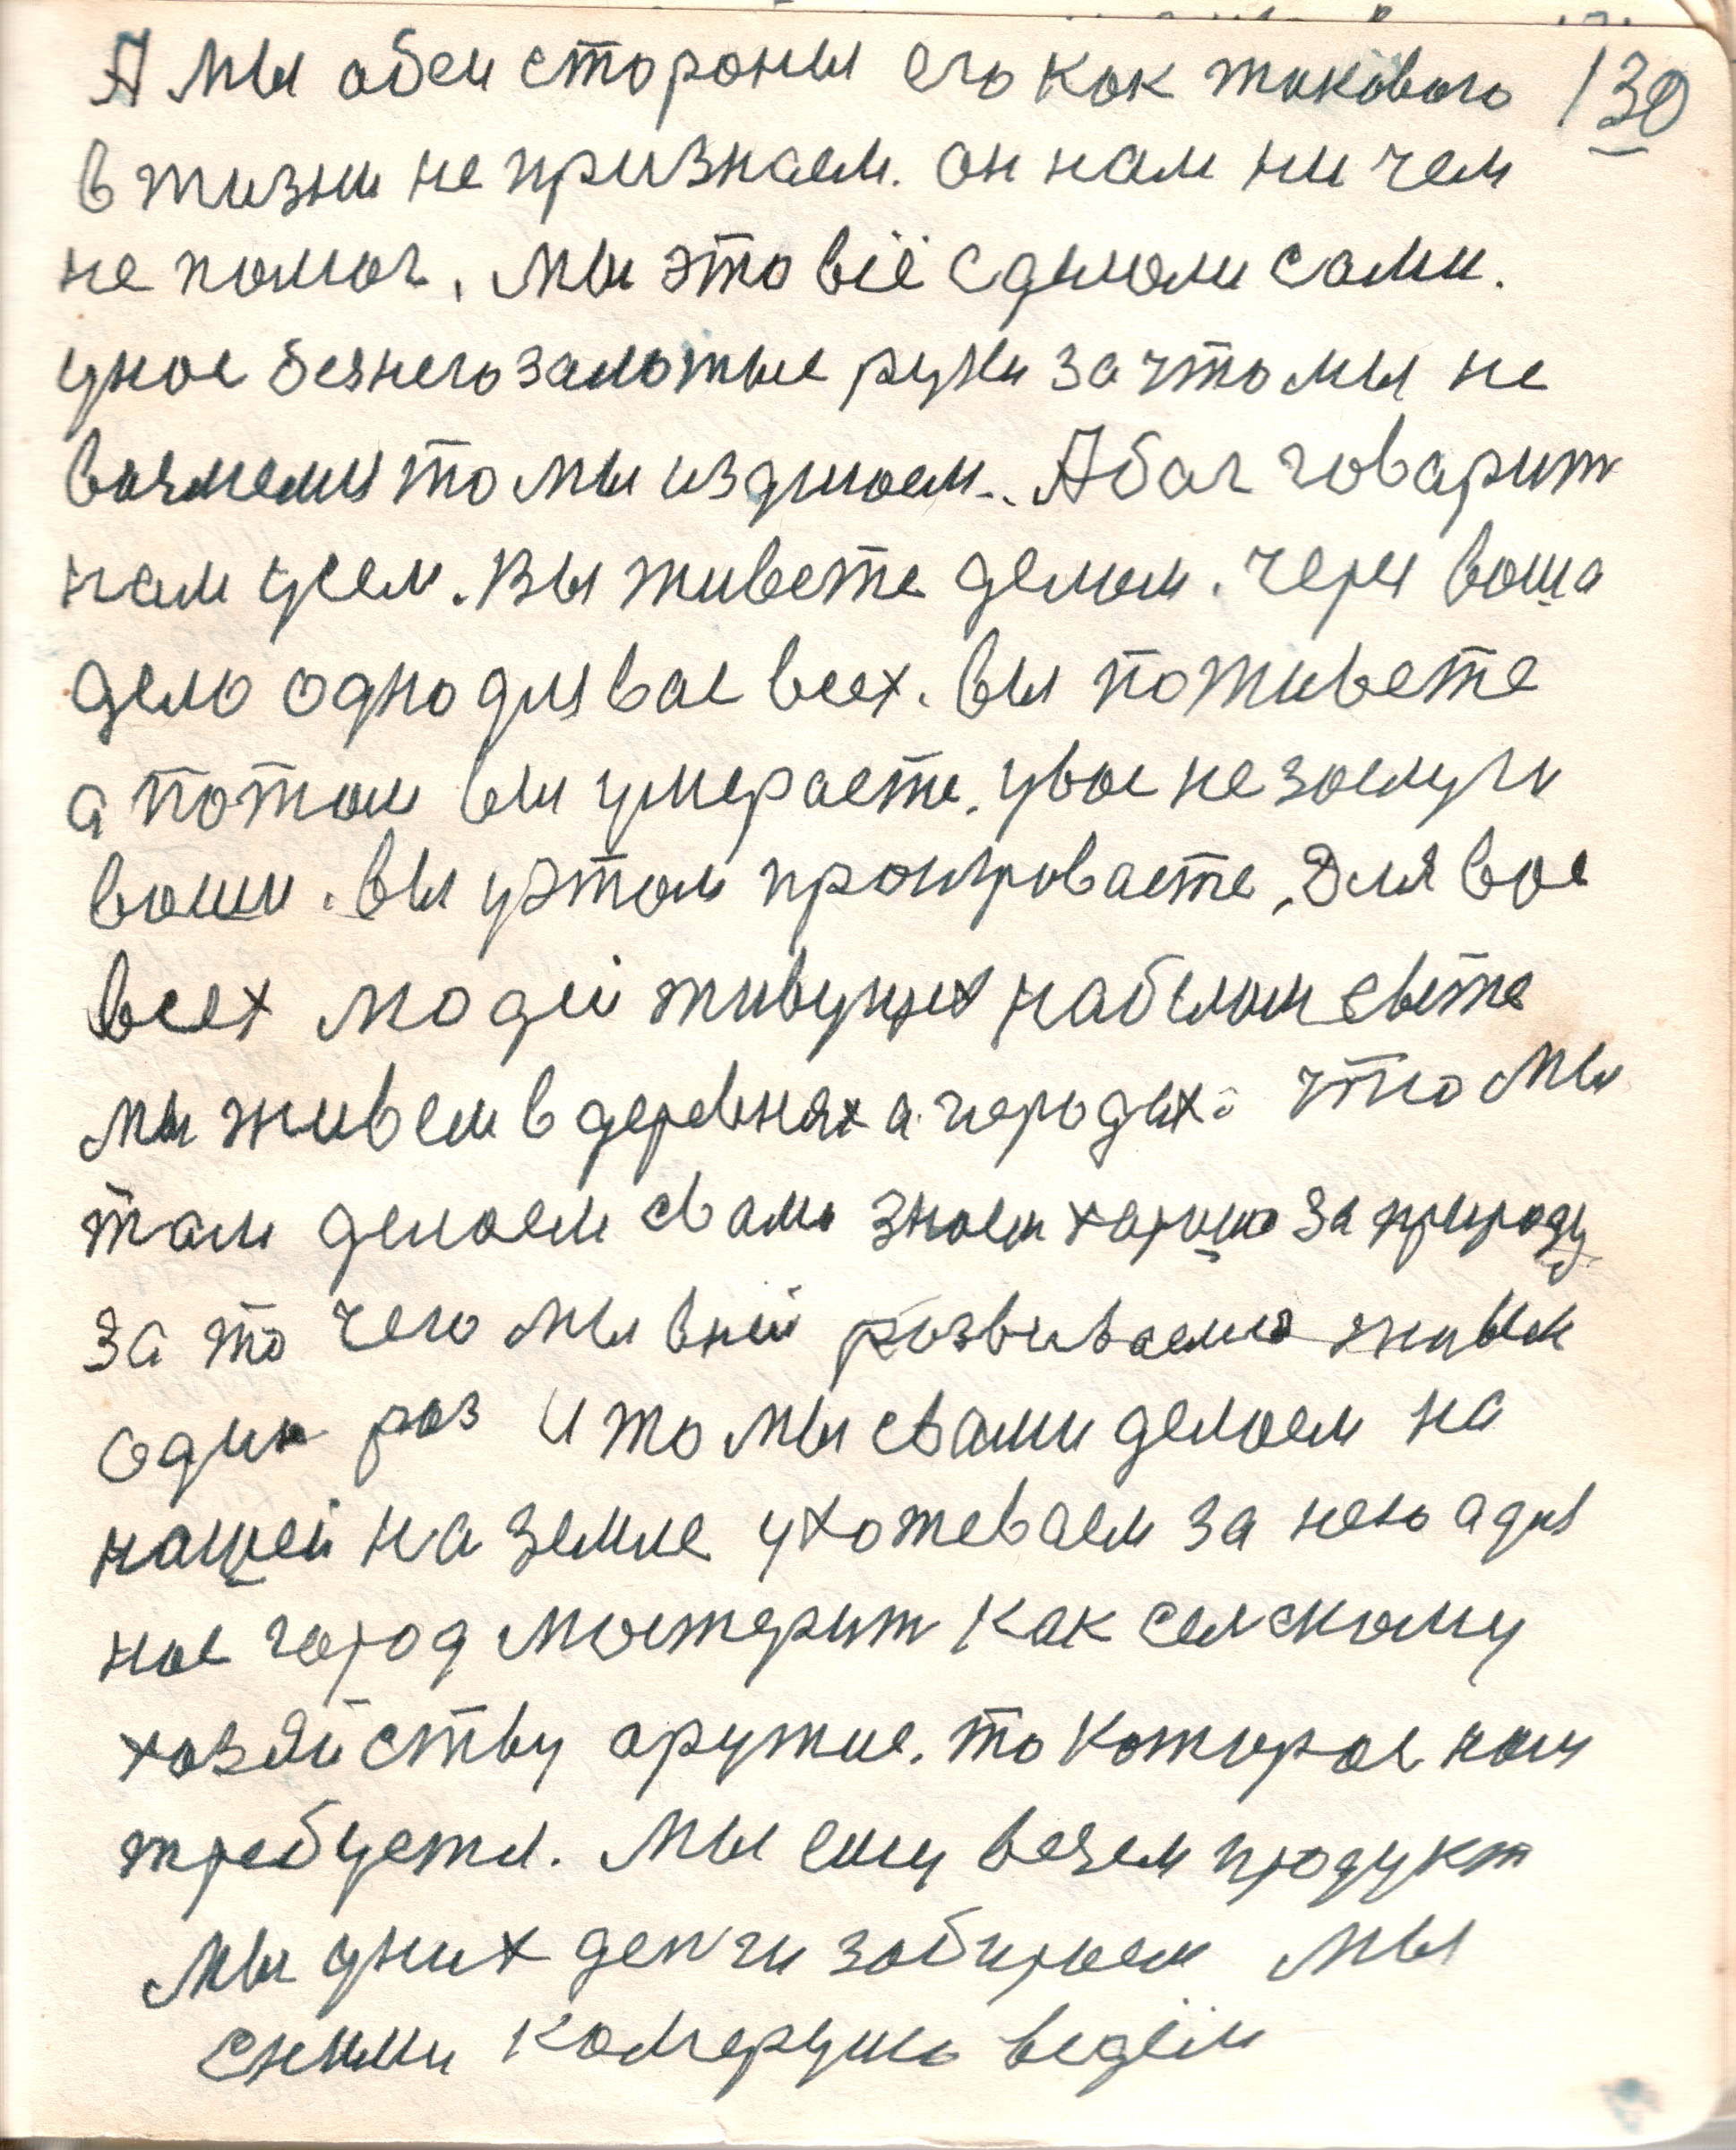 А мы обеи стороны его как такового 130
в жизни не признаем. он нам ни чем
не помог. мы это всё сделали сами.
унас безнего залотые руки за что мы не
возмемся то мы изделаем. А бог говарит
нам усем. вы живете делом. через ваша
дело одно для вас всех. вы поживете
а потом вы умераете. увас не заслуги
ваши. вы уэтом проигроваете. для вас
всех людей живущих на белом свете
мы живем в деревнях а городах. что мы
там делаем свами знаем харашо за природу
за то чего мы вней развиваемся живем
один раз и то мы свами делаем на
нашей на земле ухожеваем за нею а для
нас город мастерит как селскому
хозяйству аружие. то которое нам
требуется. мы ему везем продукт
мы уних денги забираем мы
сними комерцию ведём